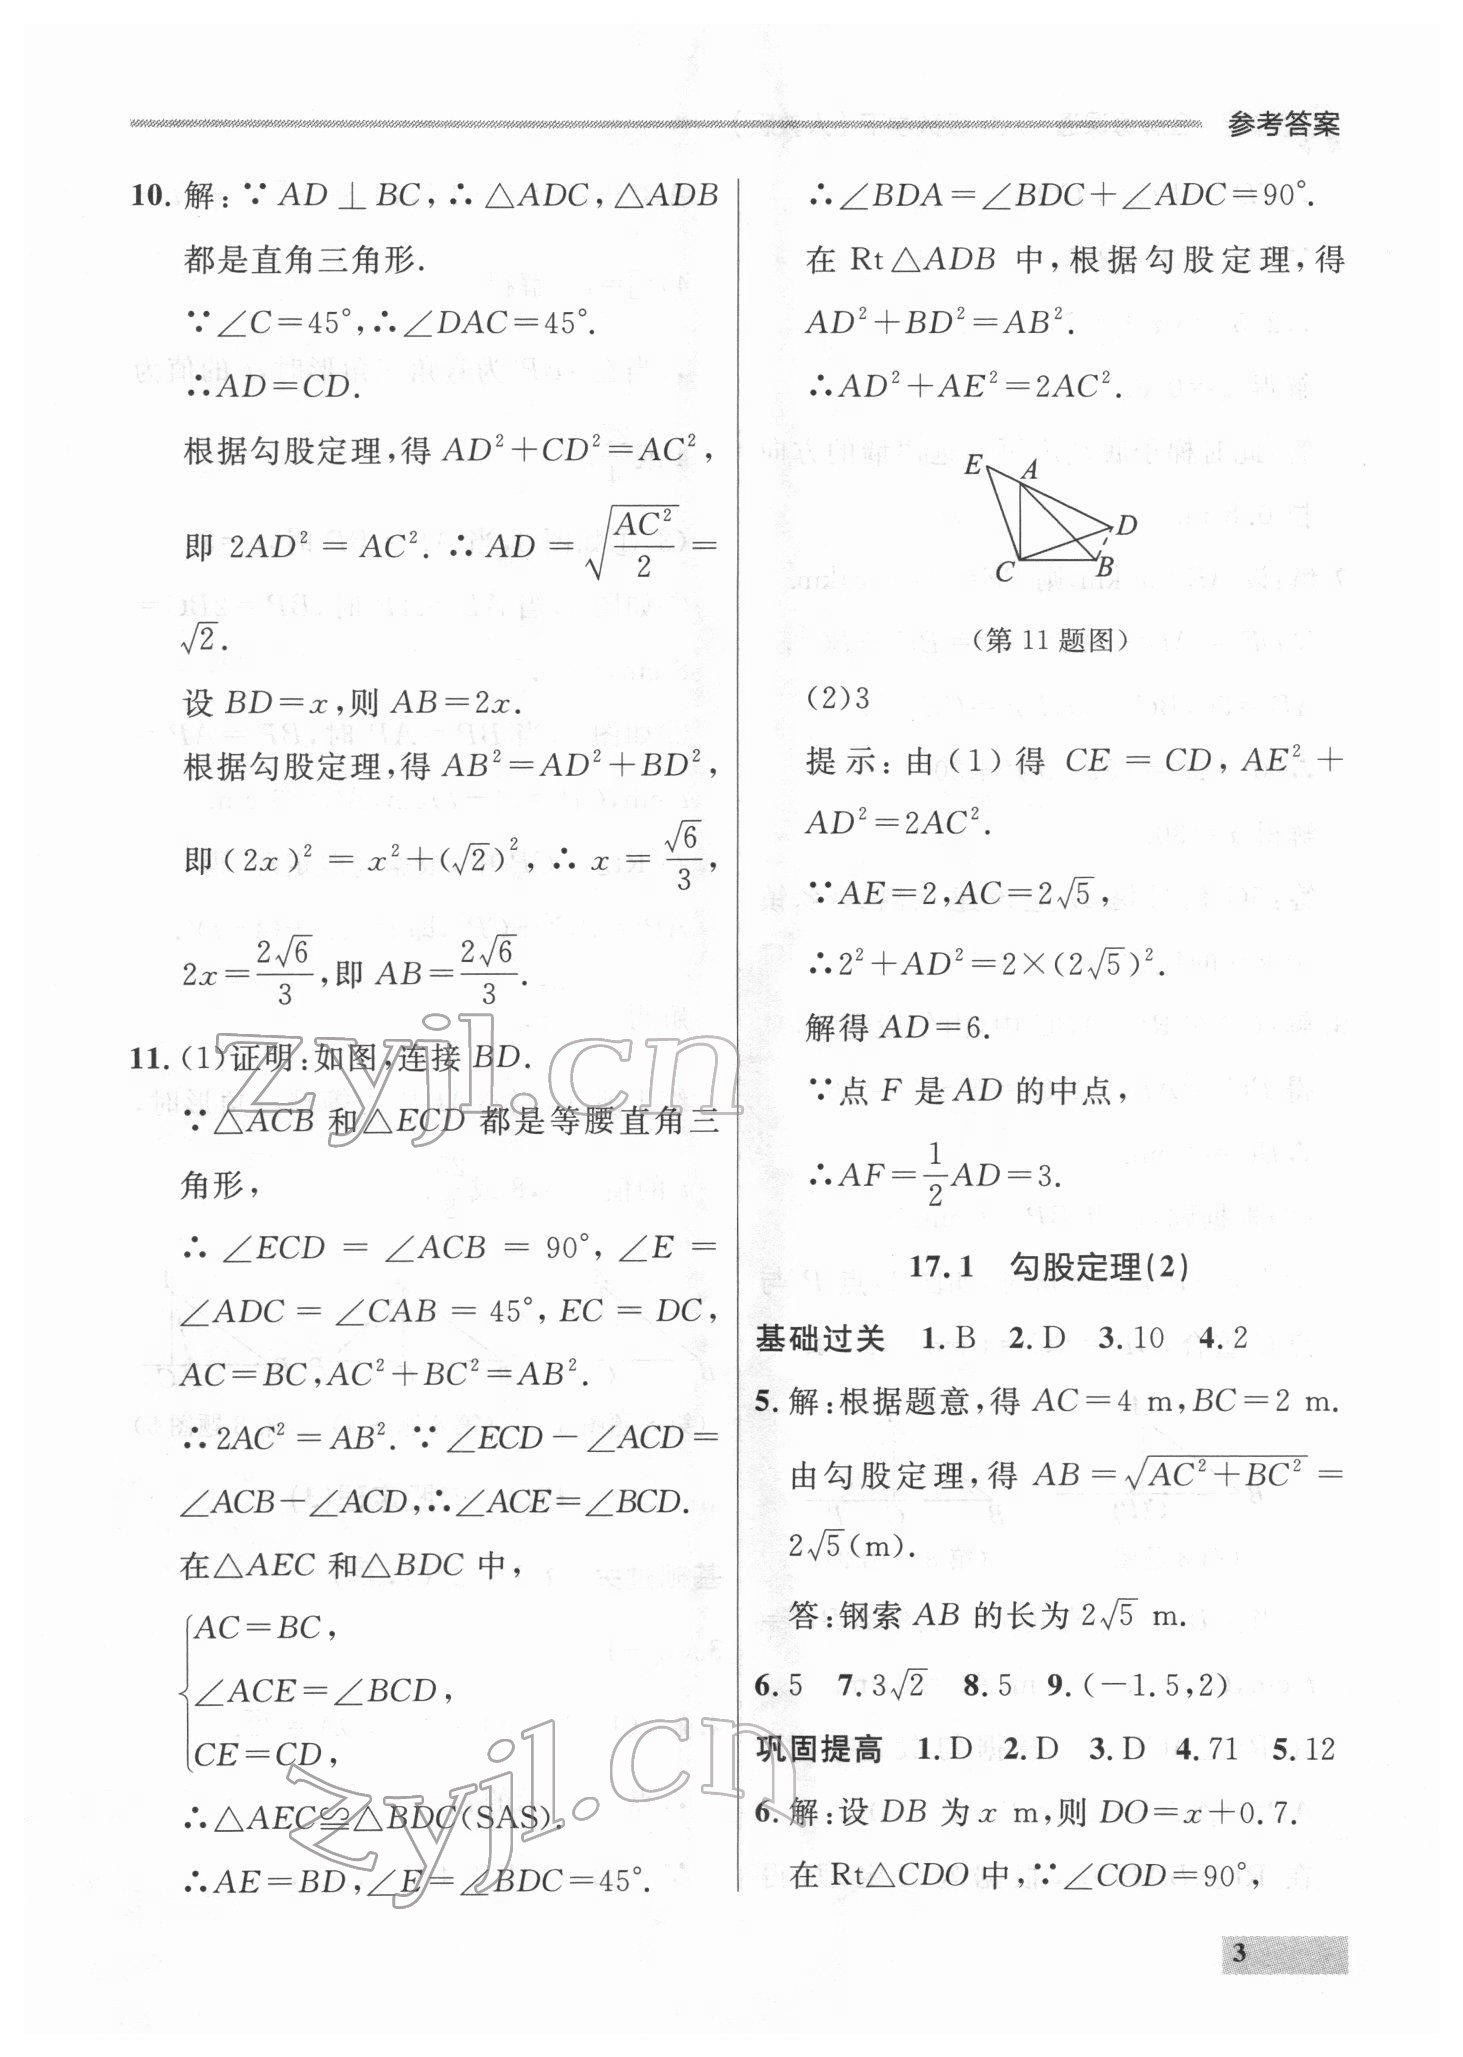 参考答案
10. 解:∵ AD⊥BC,∴ △ADC,△ADB
都是直角三角形.
∵∠C=45°,∴∠DAC=45°.
∴AD=CD.
根据勾股定理,得 AD²+CD²=AC²,
即 2AD² = AC². ∴ AD = √(AC²/2) =
√2.
设 BD=x,则 AB=2x.
根据勾股定理,得 AB²=AD²+BD²,
即(2x)² = x²+(√2)², ∴ x = √6/3,
2x=2√6/3,即 AB=2√6/3.
11. (1)证明:如图,连接 BD.
∵△ACB 和△ECD 都是等腰直角三
角形,
∴ ∠ECD = ∠ACB = 90°, ∠E =
∠ADC = ∠CAB = 45°, EC = DC,
AC=BC,AC²+BC²=AB².
∴2AC²=AB². ∵ ∠ECD-∠ACD=
∠ACB-∠ACD,∴∠ACE=∠BCD.
在△AEC 和△BDC 中,
AC=BC,
∠ACE=∠BCD,
CE=CD,
∴△AEC≌△BDC(SAS).
∴AE=BD,∠E=∠BDC=45°.
∴∠BDA=∠BDC+∠ADC=90°.
在 Rt△ADB 中,根据勾股定理,得
AD²+BD²=AB².
∴AD²+AE²=2AC².
E
A
D
C
B
(第 11 题图)
(2)3
提示:由(1)得 CE = CD, AE² +
AD²=2AC².
∵AE=2,AC=2√5,
∴2²+AD²=2×(2√5)².
解得 AD=6.
∵点 F 是 AD 的中点,
∴AF=1/2AD=3.
17.1 勾股定理(2)
基础过关 1. B 2. D 3. 10 4. 2
5. 解:根据题意,得 AC=4 m,BC=2 m.
由勾股定理,得 AB=√(AC²+BC²)=
2√5(m).
答:钢索 AB 的长为 2√5 m.
6. 5 7. 3√2 8. 5 9. (-1.5,2)
巩固提高 1. D 2. D 3. D 4. 71 5. 12
6. 解:设 DB 为 x m,则 DO=x+0.7.
在 Rt△CDO 中,∵∠COD=90°,
3
zyjl.cn
zyjl.cn